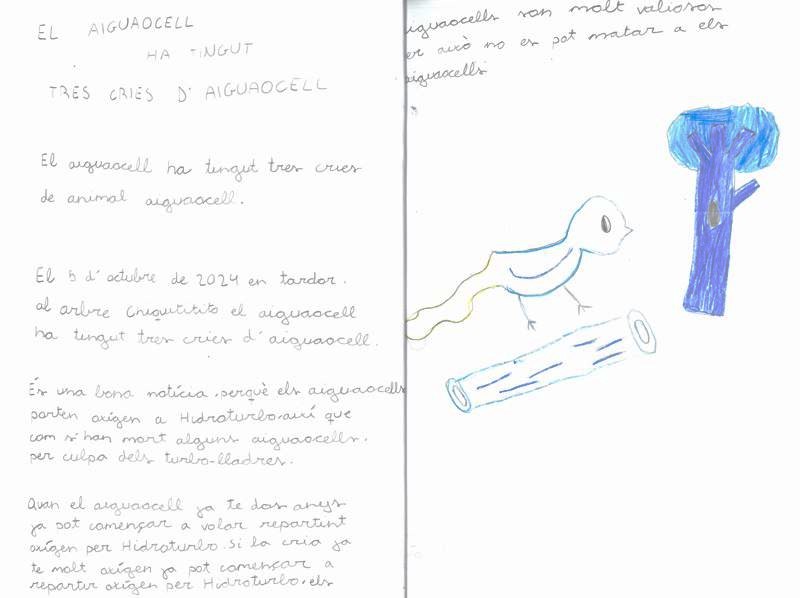 EL AIGUAOCELL
HA TINGUT
TRES CRIES D'AIGUAOCELL
El aiguaocell ha tingut tres cries
de animal aiguaocell.
El 5 d'octubre de 2024 en tardor.
al arbre Chiquititito el aiguaocell
ha tingut tres cries d'aiguaocell.
És una bona notícia, perquè els aiguaocells
porten oxígen a Hidroturbo, així que
com si han mort alguns aiguaocells,
per culpa dels turbo-lladres.
Quan el aiguaocell ja te dos anys
ja pot començar a volar repartint
oxígen per Hidroturbo. Si la cria ja
te molt oxígen ja pot començar a
repartir oxígen per Hidroturbo, els
aiguaocells son molt valiosos
per això no es pot matar a els
aiguaocells